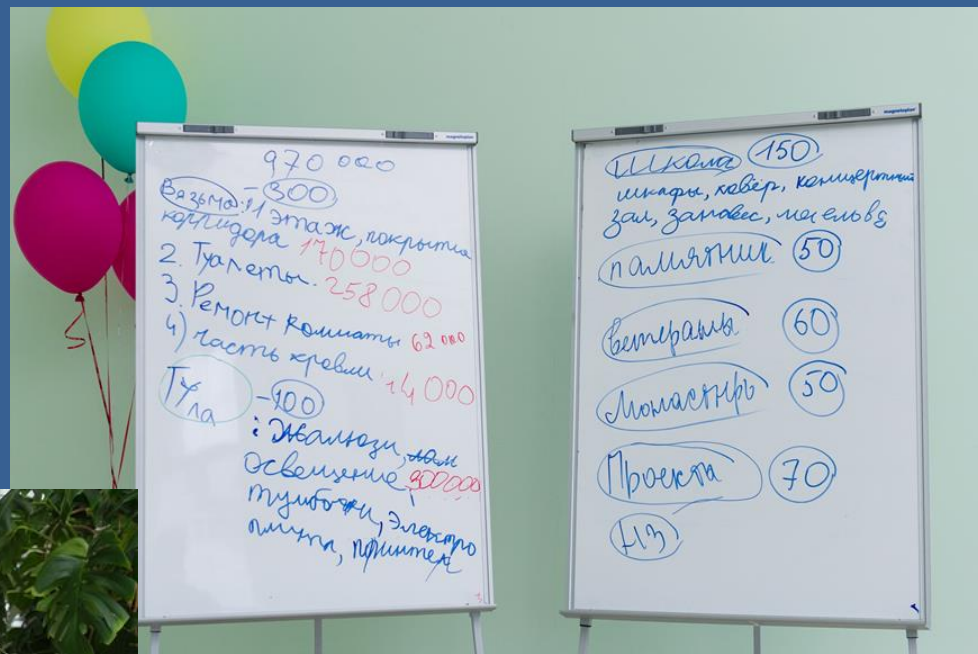 970 000
Вязьма: - 300
1 этаж, покрытие
корридора 170000
2. Туалеты. 258000
3. Ремонт комнаты 62 000
4) часть кровли 14 000
Тула - 100
: Жалюзи,
освещение, 300000
тумбочки, электро
плита, принтера
Школа 150
шкафы, ковёр, концертный
зал, занавес,
памятник 50
ветераны 60
Монастырь 50
Проекта 70
НЗ